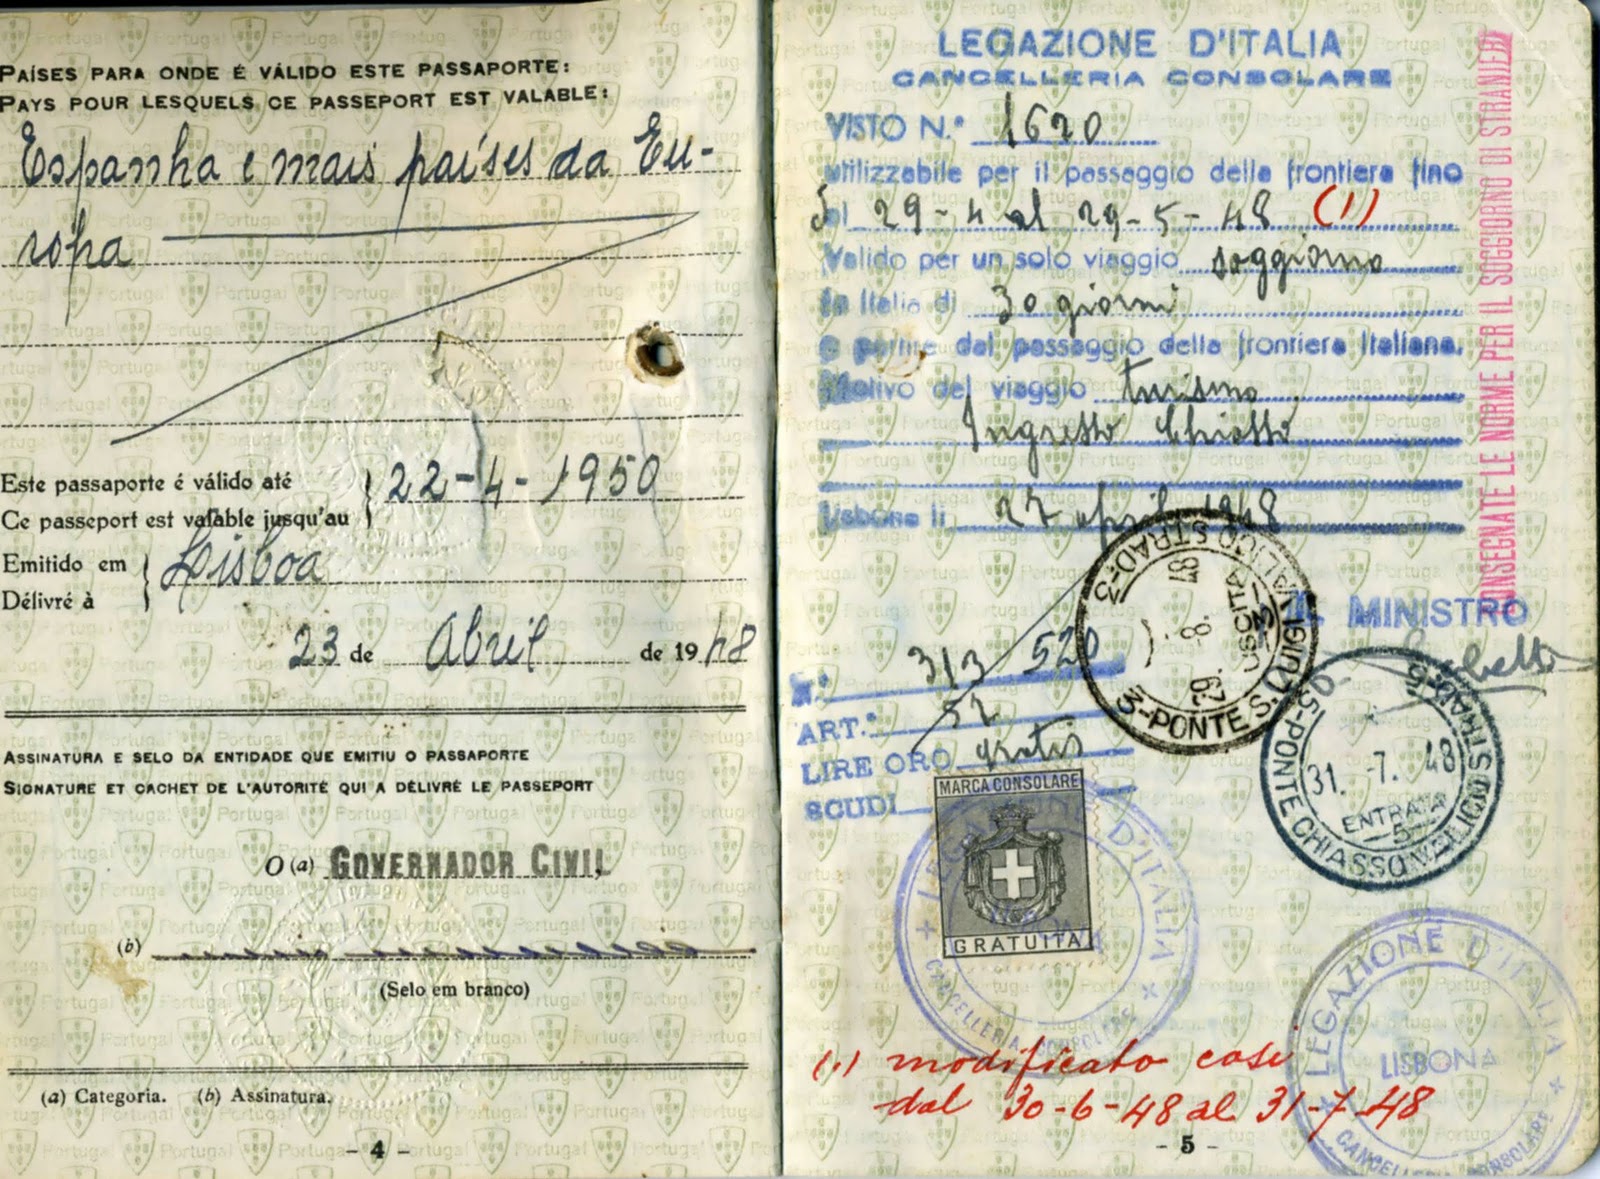 PAÍSES PARA ONDE É VÁLIDO ESTE PASSAPORTE:
PAYS POUR LESQUELS CE PASSEPORT EST VALABLE:
Espanha e mais países da Eu-
ropa
Este passaporte é válido até
Ce passeport est valable jusqu'au
22-4-1950
Emitido em
Délivré à
Lisboa
23 de Abril de 1948
ASSINATURA E SELO DA ENTIDADE QUE EMITIU O PASSAPORTE
SIGNATURE ET CACHET DE L'AUTORITÉ QUI A DÉLIVRÉ LE PASSEPORT
O (a) GOVERNADOR CIVIL
(b)
(Selo em branco)
(a) Categoria. (b) Assinatura.
- 4 -
LEGAZIONE D'ITALIA
CANCELLERIA CONSOLARE
VISTO N.° 1620
utilizzabile per il passaggio della frontiera fino
al 29-4 al 29-5-48 (1)
Valido per un solo viaggio soggiorno
in Italia di 30 giorni
a partire dal passaggio della frontiera Italiana.
Motivo del viaggio turismo
Ingresso Chiasso
Lisbona li 27 april 1948
IL MINISTRO
CONSEGNATE LE NORME PER IL SOGGIORNO DI STRANIERI
N.° 313 520
ART.° 52
LIRE ORO gratis
SCUDI
3-PONTE S. LUIGI VALICO STRAD-3
USCITA
3
31.-7.48
ENTRATA
5
5-PONTE CHIASSO VALICO STRAD-5
MARCA CONSOLARE
GRATUITA
LEGAZIONE D'ITALIA
CANCELLERIA CONSOLARE
LEGAZIONE D'ITALIA
LISBONA
CANCELLERIA CONSOLARE
(1) modificato cosi
dal 30-6-48 al 31-7-48
- 5 -